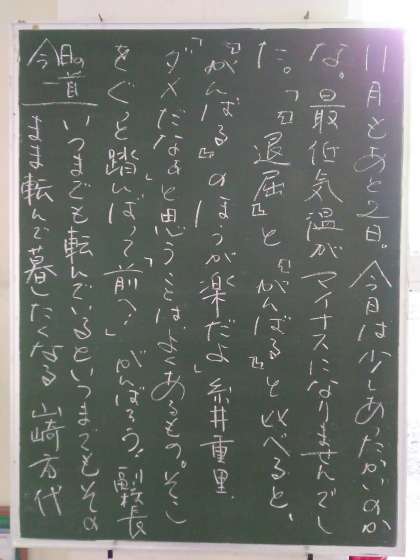 11月もあと2日。今月は少しあったかいのか
な。最低気温がマイナスになりませんでし
た。「『退屈』と『がんばる』と比べると、
『がんばる』のほうが楽だよ」糸井重里
「ダメだなぁと思うことはよくあるもの。そこ
をぐっと踏んばって前へ！」がんばろう！副校長
今日の一首
いつまでも転んでいるといつまでもその
まま転んで暮したくなる 山崎方代